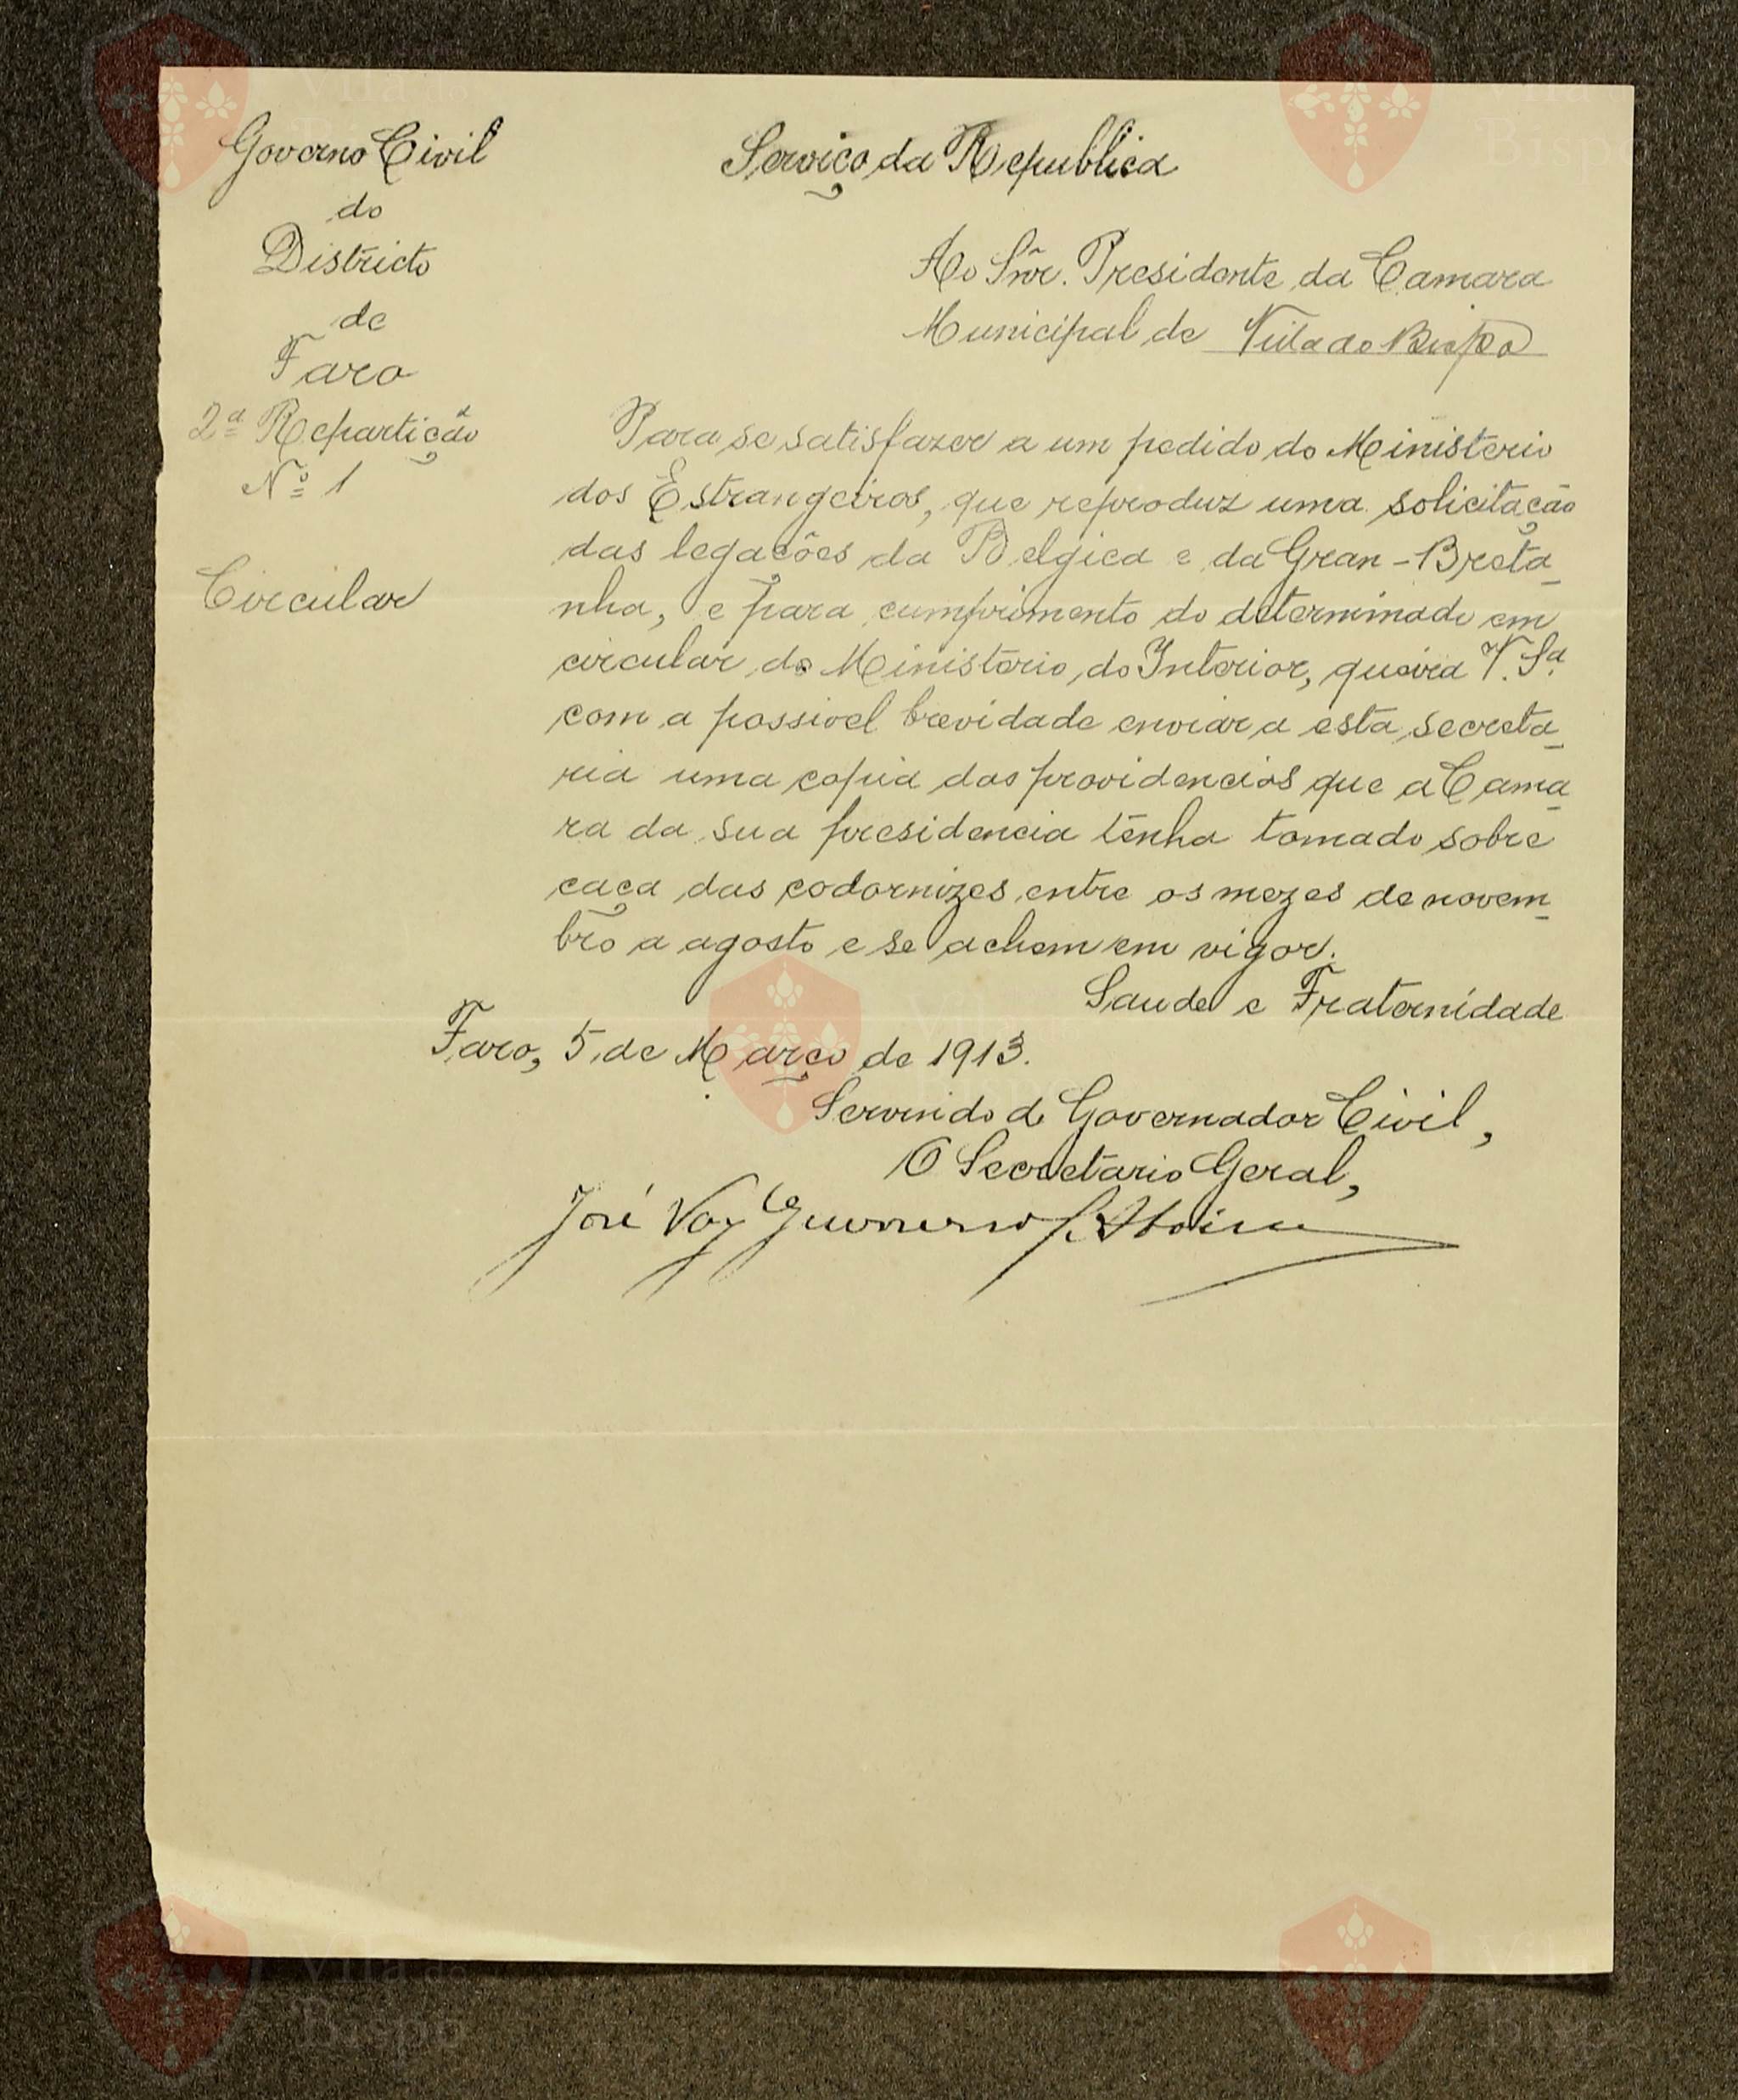 Governo Civil
do
Districto
de
Faro
2ª Repartição
Nº 1
Circular
Serviço da Republica
Ao Snr. Presidente da Camara
Municipal de Villa do Bispo
Para se satisfazer a um pedido do Ministerio
dos Estrangeiros, que reproduz uma solicitação
das legações da Belgica e da Gran-Breta-
nha, e para cumprimento do determinado em
circular do Ministerio do Interior, queira V. Sª
com a possivel brevidade enviar a esta secreta-
ria uma copia das providencias que a Cama-
ra da sua presidencia tenha tomado sobre
caça das codornizes entre os mezes de novem-
bro a agosto e se achem em vigor.
Saude e Fraternidade
Faro, 5 de Março de 1913.
Servindo de Governador Civil,
O Secretario Geral,
José Vaz Guerreiro
Vila do
Bispo
Vila do
Bispo
Vila do
Bispo
Vila do
Bispo
Vila do
Bispo